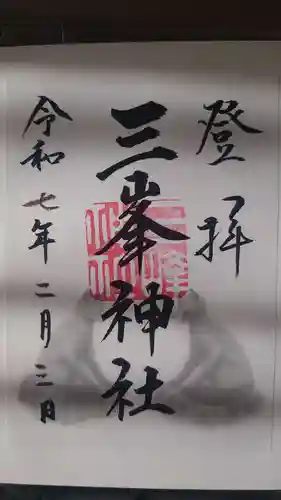 登拝
三峯神社
令和七年二月三日